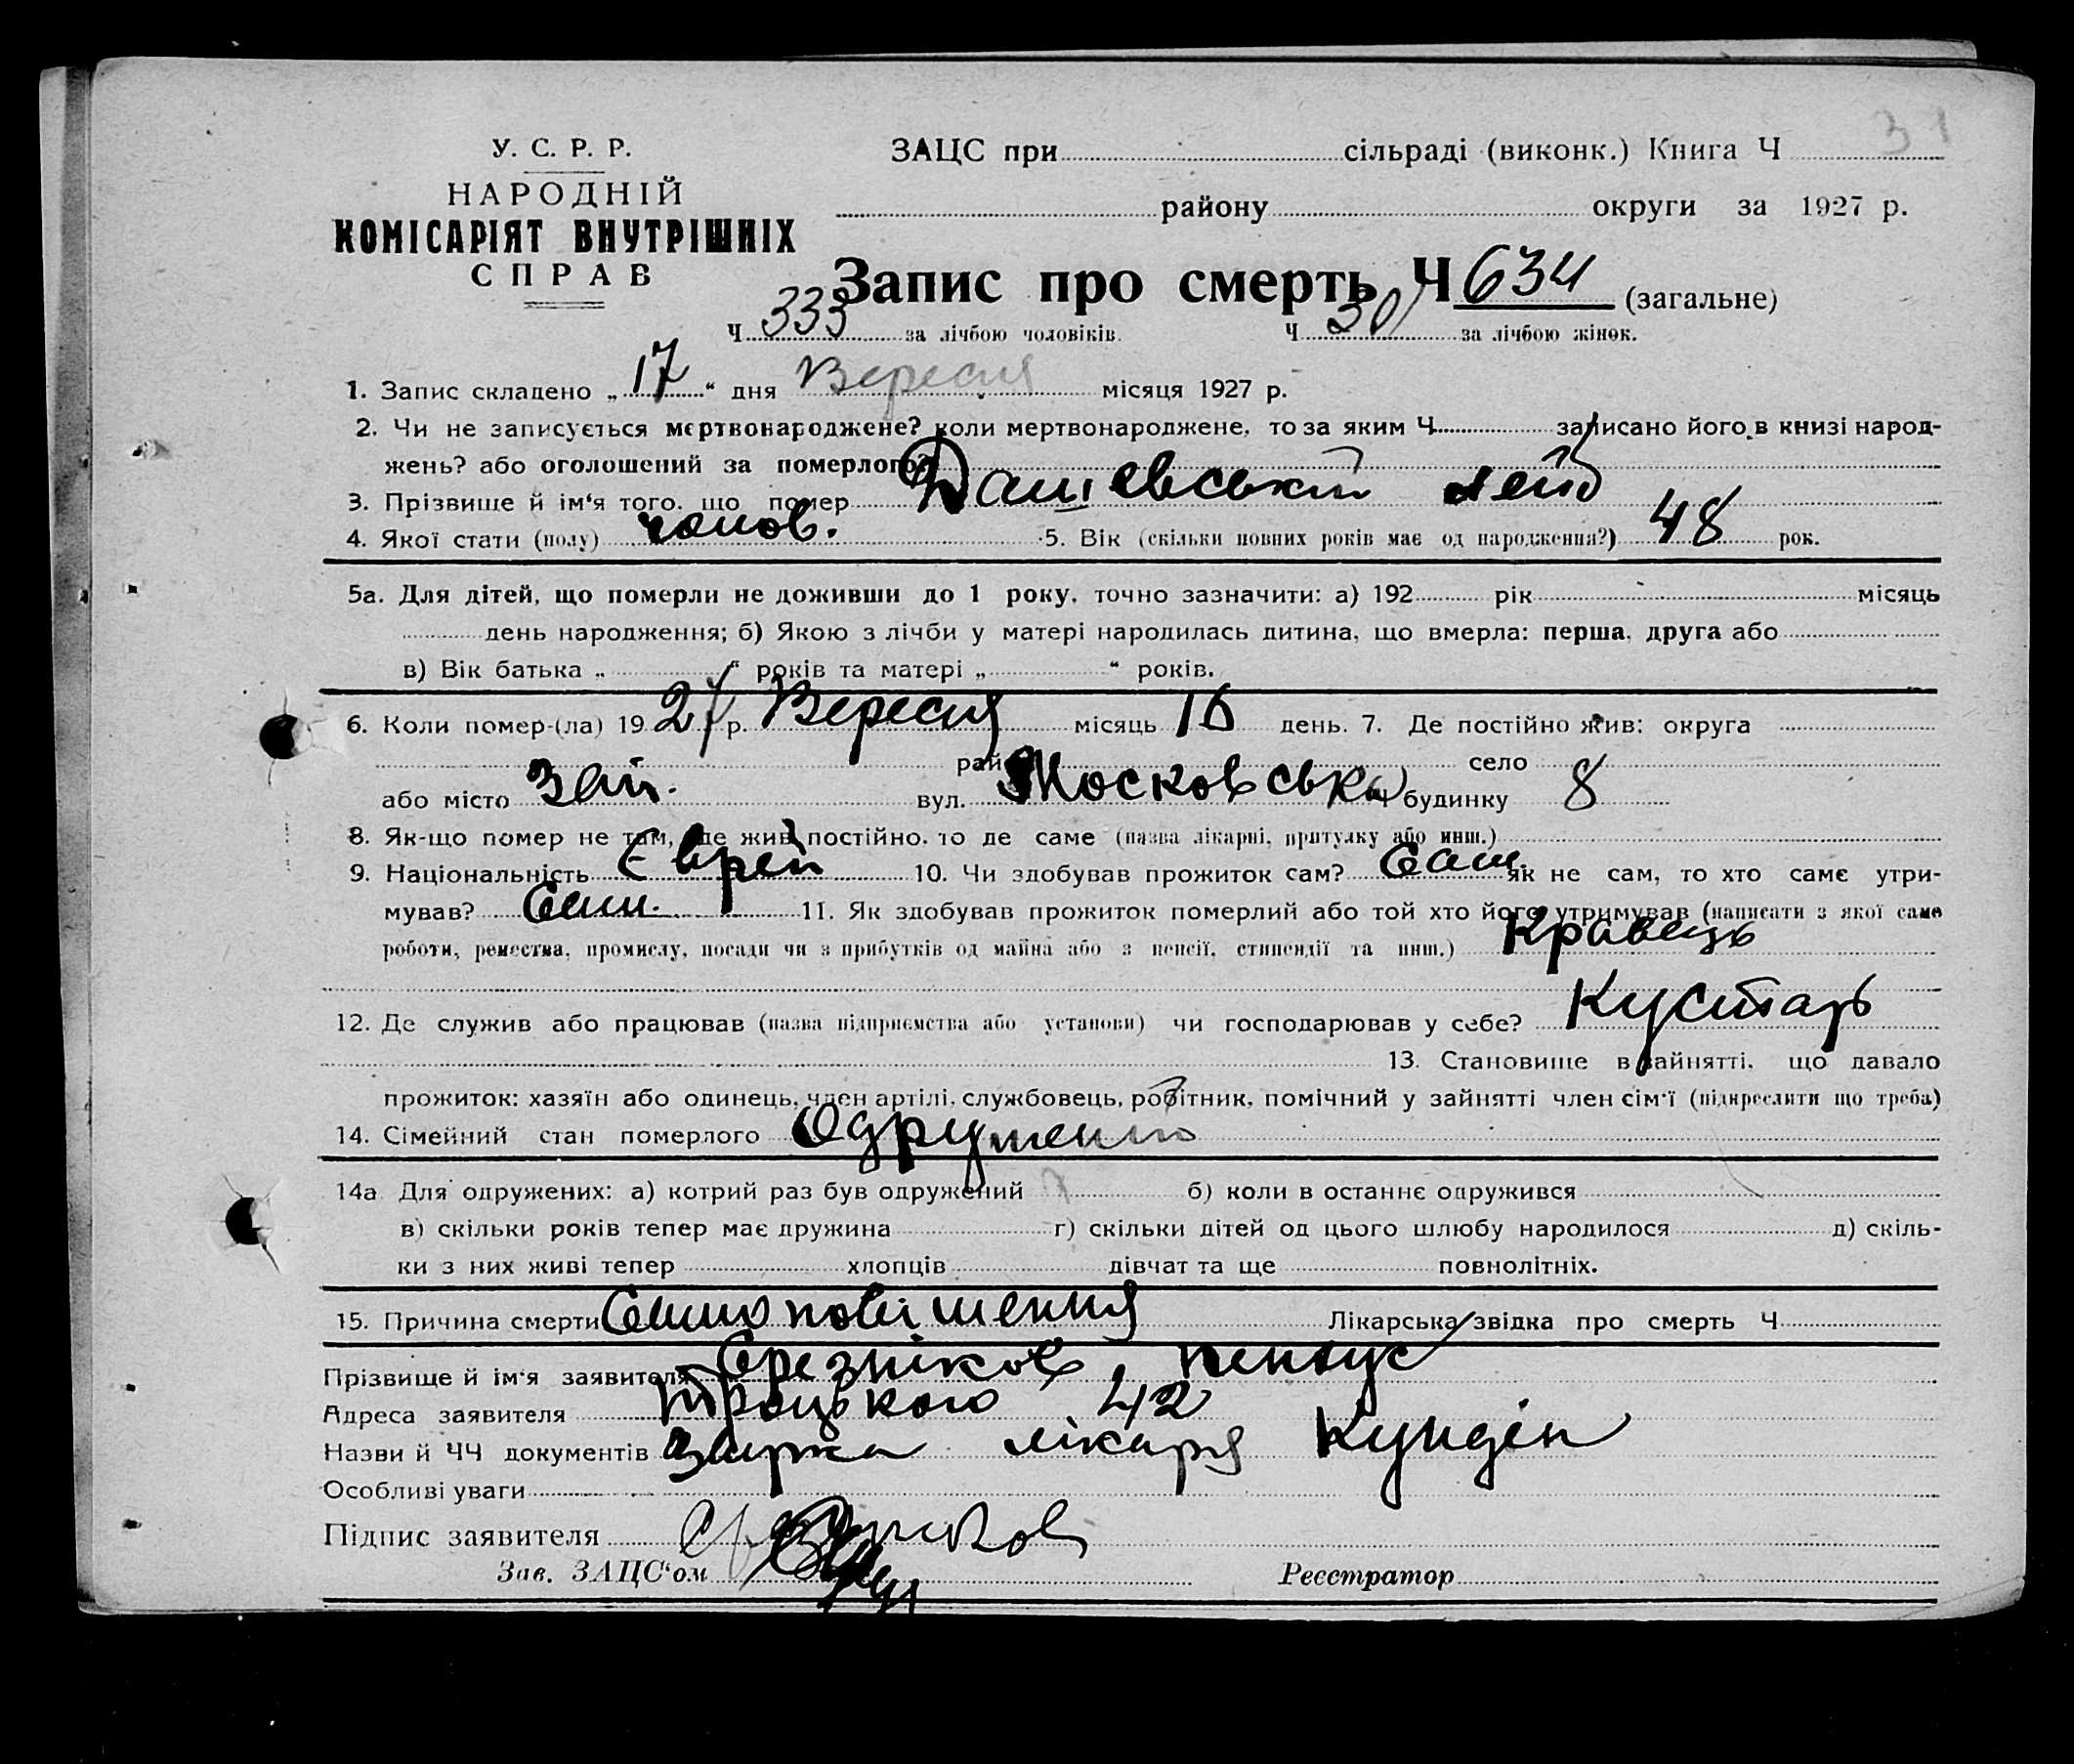 31
У. С. Р. Р.
НАРОДНІЙ
КОМІСАРІЯТ ВНУТРІШНІХ
СПРАВ
ЗАЦС при сільраді (виконк.) Книга Ч
району округи за 1927 р.
Запис про смерть Ч 634 (загальне)
Ч 333 за лічбою чоловіків. Ч 301 за лічбою жінок.
1. Запис складено „ 17 “ дня Вересня місяця 1927 р.
2. Чи не записується мертвонароджене? коли мертвонароджене, то за яким Ч записано його в книзі народ-
жень? або оголошений за померлого?
3. Прізвище й ім‘я того, що помер Дашевський Лейб
4. Якої стати (полу) чолов. 5. Вік (скільки повних років має од народження?) 48 рок.
5а. Для дітей, що померли не доживши до 1 року, точно зазначити: а) 192 рік місяць
день народження; б) Якою з лічби у матері народилась дитина, що вмерла: перша, друга або
в) Вік батька „ “ років та матері „ “ років.
6. Коли помер-(ла) 19 27 р. Вересня місяць 16 день. 7. Де постійно жив: округа
район село
або місто Зен. вул. Московська будинку 8
8. Як-що помер не там, де жив постійно, то де саме (назва лікарні, притулку або инш.)
9. Національність Єврей 10. Чи здобував прожиток сам? Сам як не сам, то хто саме утри-
мував? Сам. 11. Як здобував прожиток померлий або той хто його утримував (написати з якої саме
роботи, ремества, промислу, посади чи з прибутків од майна або з пенсії, стипендії та инш.) Кравець
12. Де служив або працював (назва підприємства або установи) чи господарював у себе? Кустарь
13. Становище в зайнятті, що давало
прожиток: хазяїн або одинець, член артілі, службовець, робітник, помічний у зайнятті член сім‘ї (підкреслити що треба)
14. Сімейний стан померлого Одружений
14а Для одружених: а) котрий раз був одружений б) коли в останнє одружився
в) скільки років тепер має дружина г) скільки дітей од цього шлюбу народилося д) скіль-
ки з них живі тепер хлопців дівчат та ще повнолітніх.
15. Причина смерти Самоповішення Лікарська звідка про смерть Ч
Прізвище й ім‘я заявителя Срезніков
Адреса заявителя Троцького 42
Назви й ЧЧ документів лікаря Кундін
Особливі уваги
Підпис заявителя
Зав. ЗАЦС‘ом Реєстратор